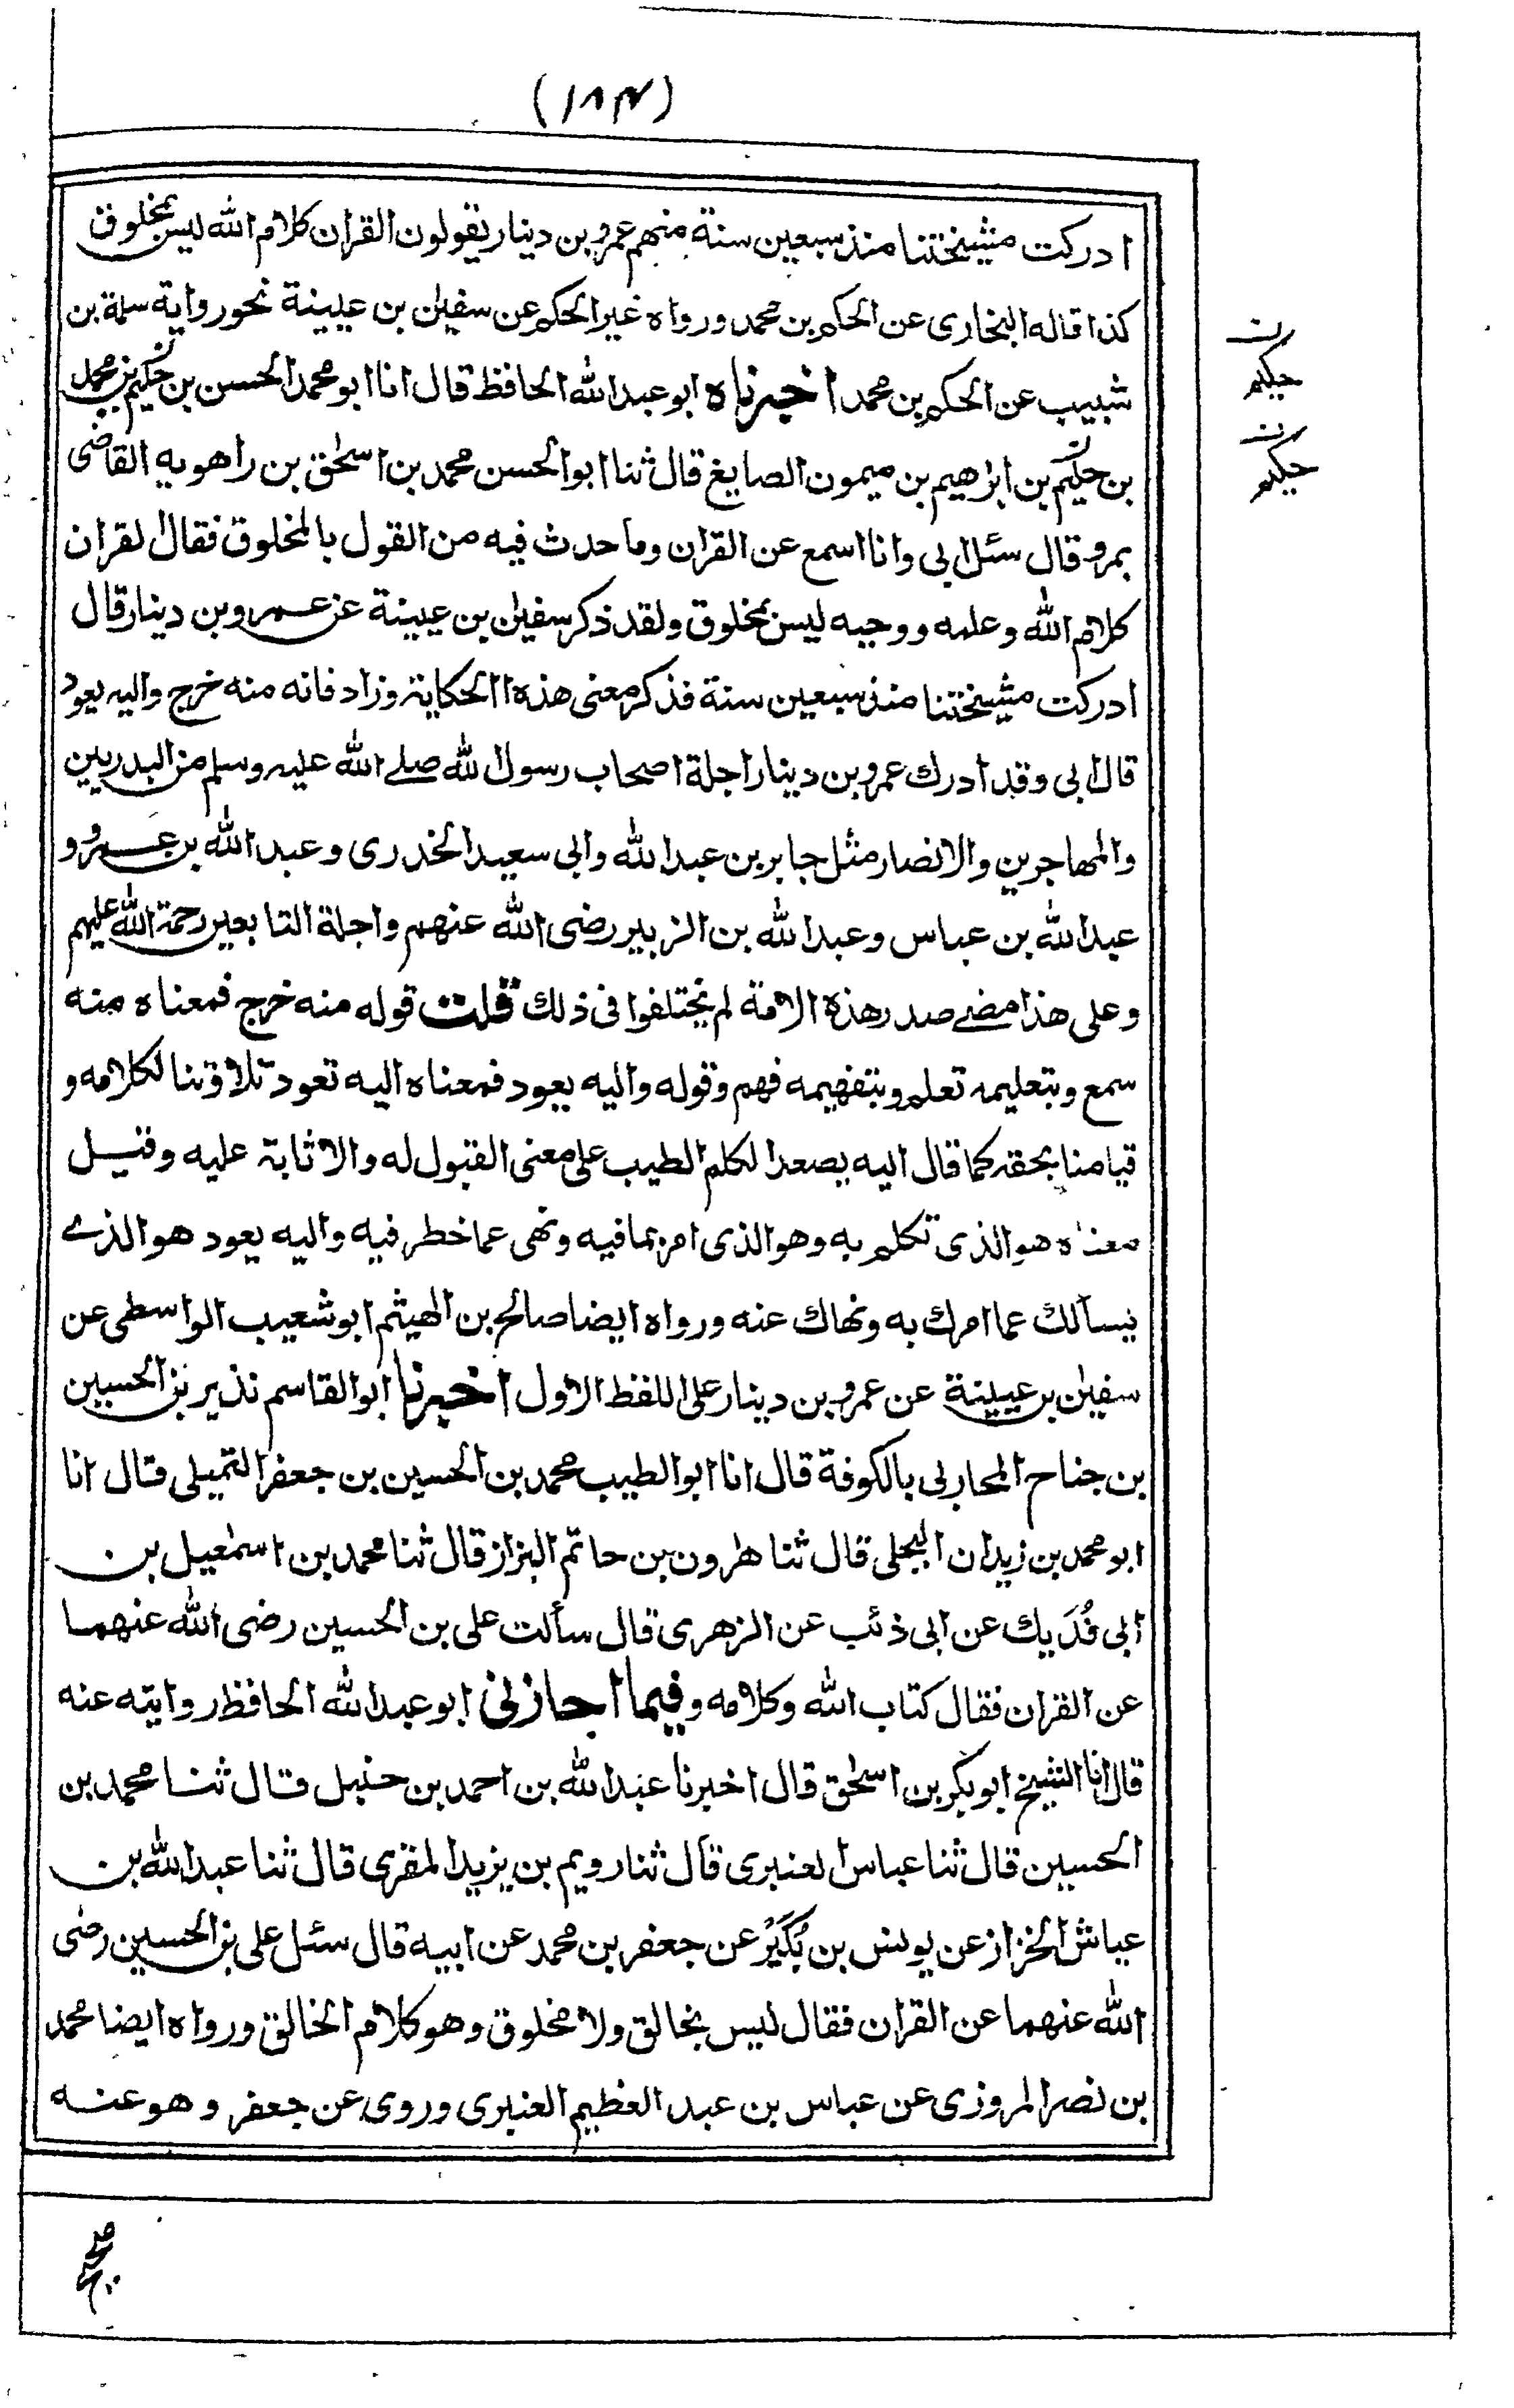 (١٨٤)
ادركت مشيختنا منذ سبعين سنة منهم عمرو بن دينار يقولون القران كلام الله ليس بمخلوق
كذا قاله البخارى عن الحكم بن محمد ورواه غير الحكم عن سفيٰن بن عيينة نحو رواية سلمة بن
شبيب عن الحكم بن محمد اخبرناه ابو عبد الله الحافظ قال انا ابو محمد الحسن بن حكيم بن محمد
بن حكيم بن ابراهيم بن ميمون الصايغ قال ثنا ابو الحسن محمد بن اسحٰق بن راهويه القاضى
بمرو قال سئل ابى وانا اسمع عن القران وما حدث فيه من القول بالمخلوق فقال القران
كلام الله وعلمه ووحيه ليس بمخلوق ولقد ذكر سفيٰن بن عيينة عن عمرو بن دينار قال
ادركت مشيختنا منذ سبعين سنة فذكر معنى هذه الحكاية وزاد فانه منه خرج واليه يعود
قال ابى وقد ادرك عمرو بن دينار اجلة اصحاب رسول الله صلے الله عليه وسلم من البدريين
والمهاجرين والانصار مثل جابر بن عبد الله وابى سعيد الخدرى وعبد الله بن عمرو و
عبد الله بن عباس وعبد الله بن الزبير رضى الله عنهم واجلة التابعين رحمة الله عليهم
وعلى هذا مضے صدر هذه الامة لم يختلفوا فى ذلك قلت قوله منه خرج فمعناه منه
سمع وبتعليمه تعلم وبتفهيمه فهم وقوله واليه يعود فمعناه اليه تعود تلاوتنا لكلامه و
قيامنا بحقه كما قال اليه يصعد الكلم الطيب على معنى القبول له والاثابة عليه وقيل
معناه هو الذى تكلم به وهو الذى امر بما فيه ونهى عما خطر فيه واليه يعود هو الذے
يسألك عما امرك به ونهاك عنه ورواه ايضا صالح بن الهيثم ابو شعيب الواسطى عن
سفيٰن بن عيينة عن عمرو بن دينار على اللفظ الاول اخبرنا ابو القاسم نذير بن الحسين
بن جناح المحاربى بالكوفة قال انا ابو الطيب محمد بن الحسين بن جعفر التميلى قال انا
ابو محمد بن زيدان البجلى قال ثنا هٰرون بن حاتم البزاز قال ثنا محمد بن اسمٰعيل بن
ابى فُدَيك عن ابى ذئب عن الزهرى قال سألت على بن الحسين رضى الله عنهما
عن القران فقال كتاب الله وكلامه وفيما اجازنى ابو عبد الله الحافظ روايته عنه
قال انا الشيخ ابو بكر بن اسحٰق قال اخبرنا عبد الله بن احمد بن حنبل قال ثنا محمد بن
الحسين قال ثنا عباس العنبرى قال ثنا رويم بن يزيد المقرى قال ثنا عبد الله بن
عياش الخزاز عن يونس بن بُكَيْر عن جعفر بن محمد عن ابيه قال سئل على بن الحسين رضى
الله عنهما عن القران فقال ليس بخالق ولا مخلوق وهو كلام الخالق ورواه ايضا محمد
بن نصر المروزى عن عباس بن عبد العظيم العنبرى وروى عن جعفر وهو عنه
ن
حكيم
ن
حكيم
صحيح